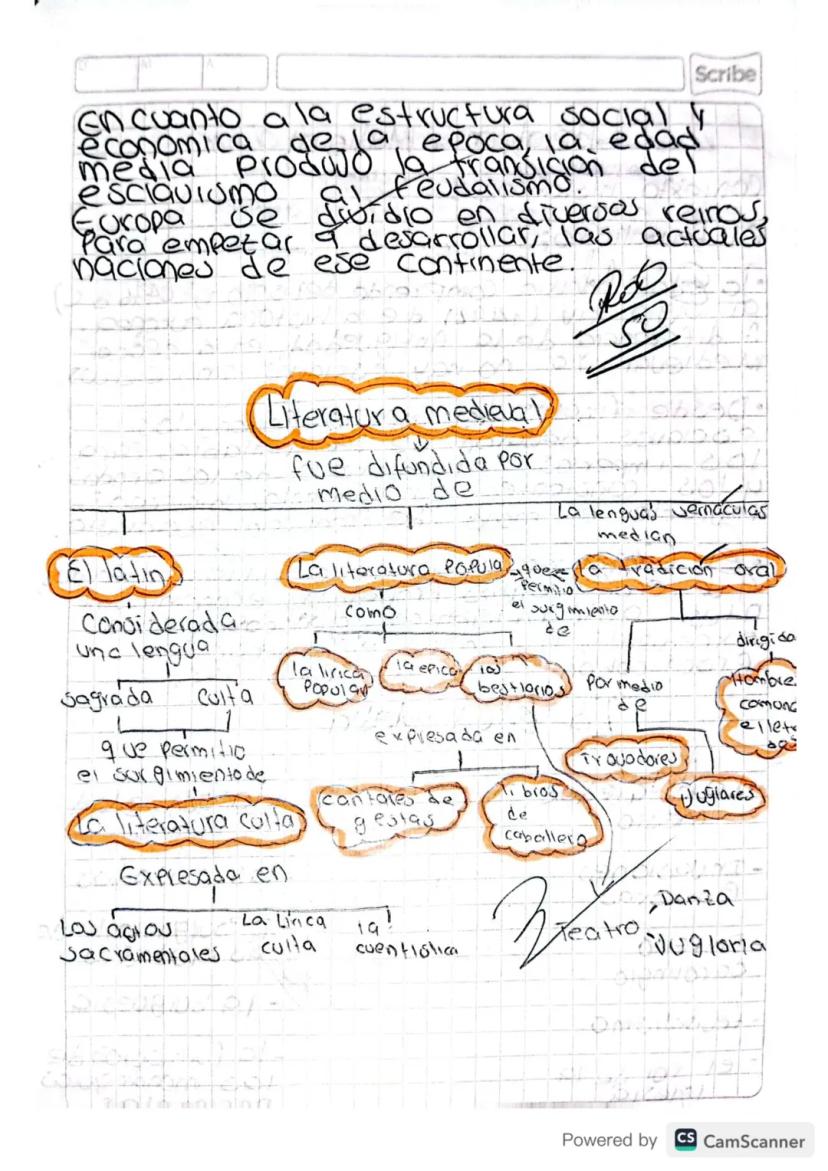 Scribe
En cuanto a la estructura social y
economica de la epoca, la edad
media produjo la transición del
esclavismo al feudalismo.
Europa se dividio en diversos reinos,
Para empezar a desarrollar, las actuales
naciones de ese continente.
50
Literatura medieval
fue difundida por
medio de
La lenguas vernáculas
median
El latin
La literatura popula
que
permitio
el surgimiento
de
La tradición oral
Considerada
una lengua
sagrada
culta
que permitio
el surgimiento de
La literatura culta
Expresada en
Los autos
sacramentales
La Lírica
culta
la
cuentistica
como
la lirica
Popular
la epica
los
bestiarios
expresada en
cantares de
gestas
libros
de
caballero
Por medio
de
Trovadores
Juglares
dirigida
Hombre
comun
e letra
dos
Teatro, Danza
Jugloria
Powered by CS CamScanner